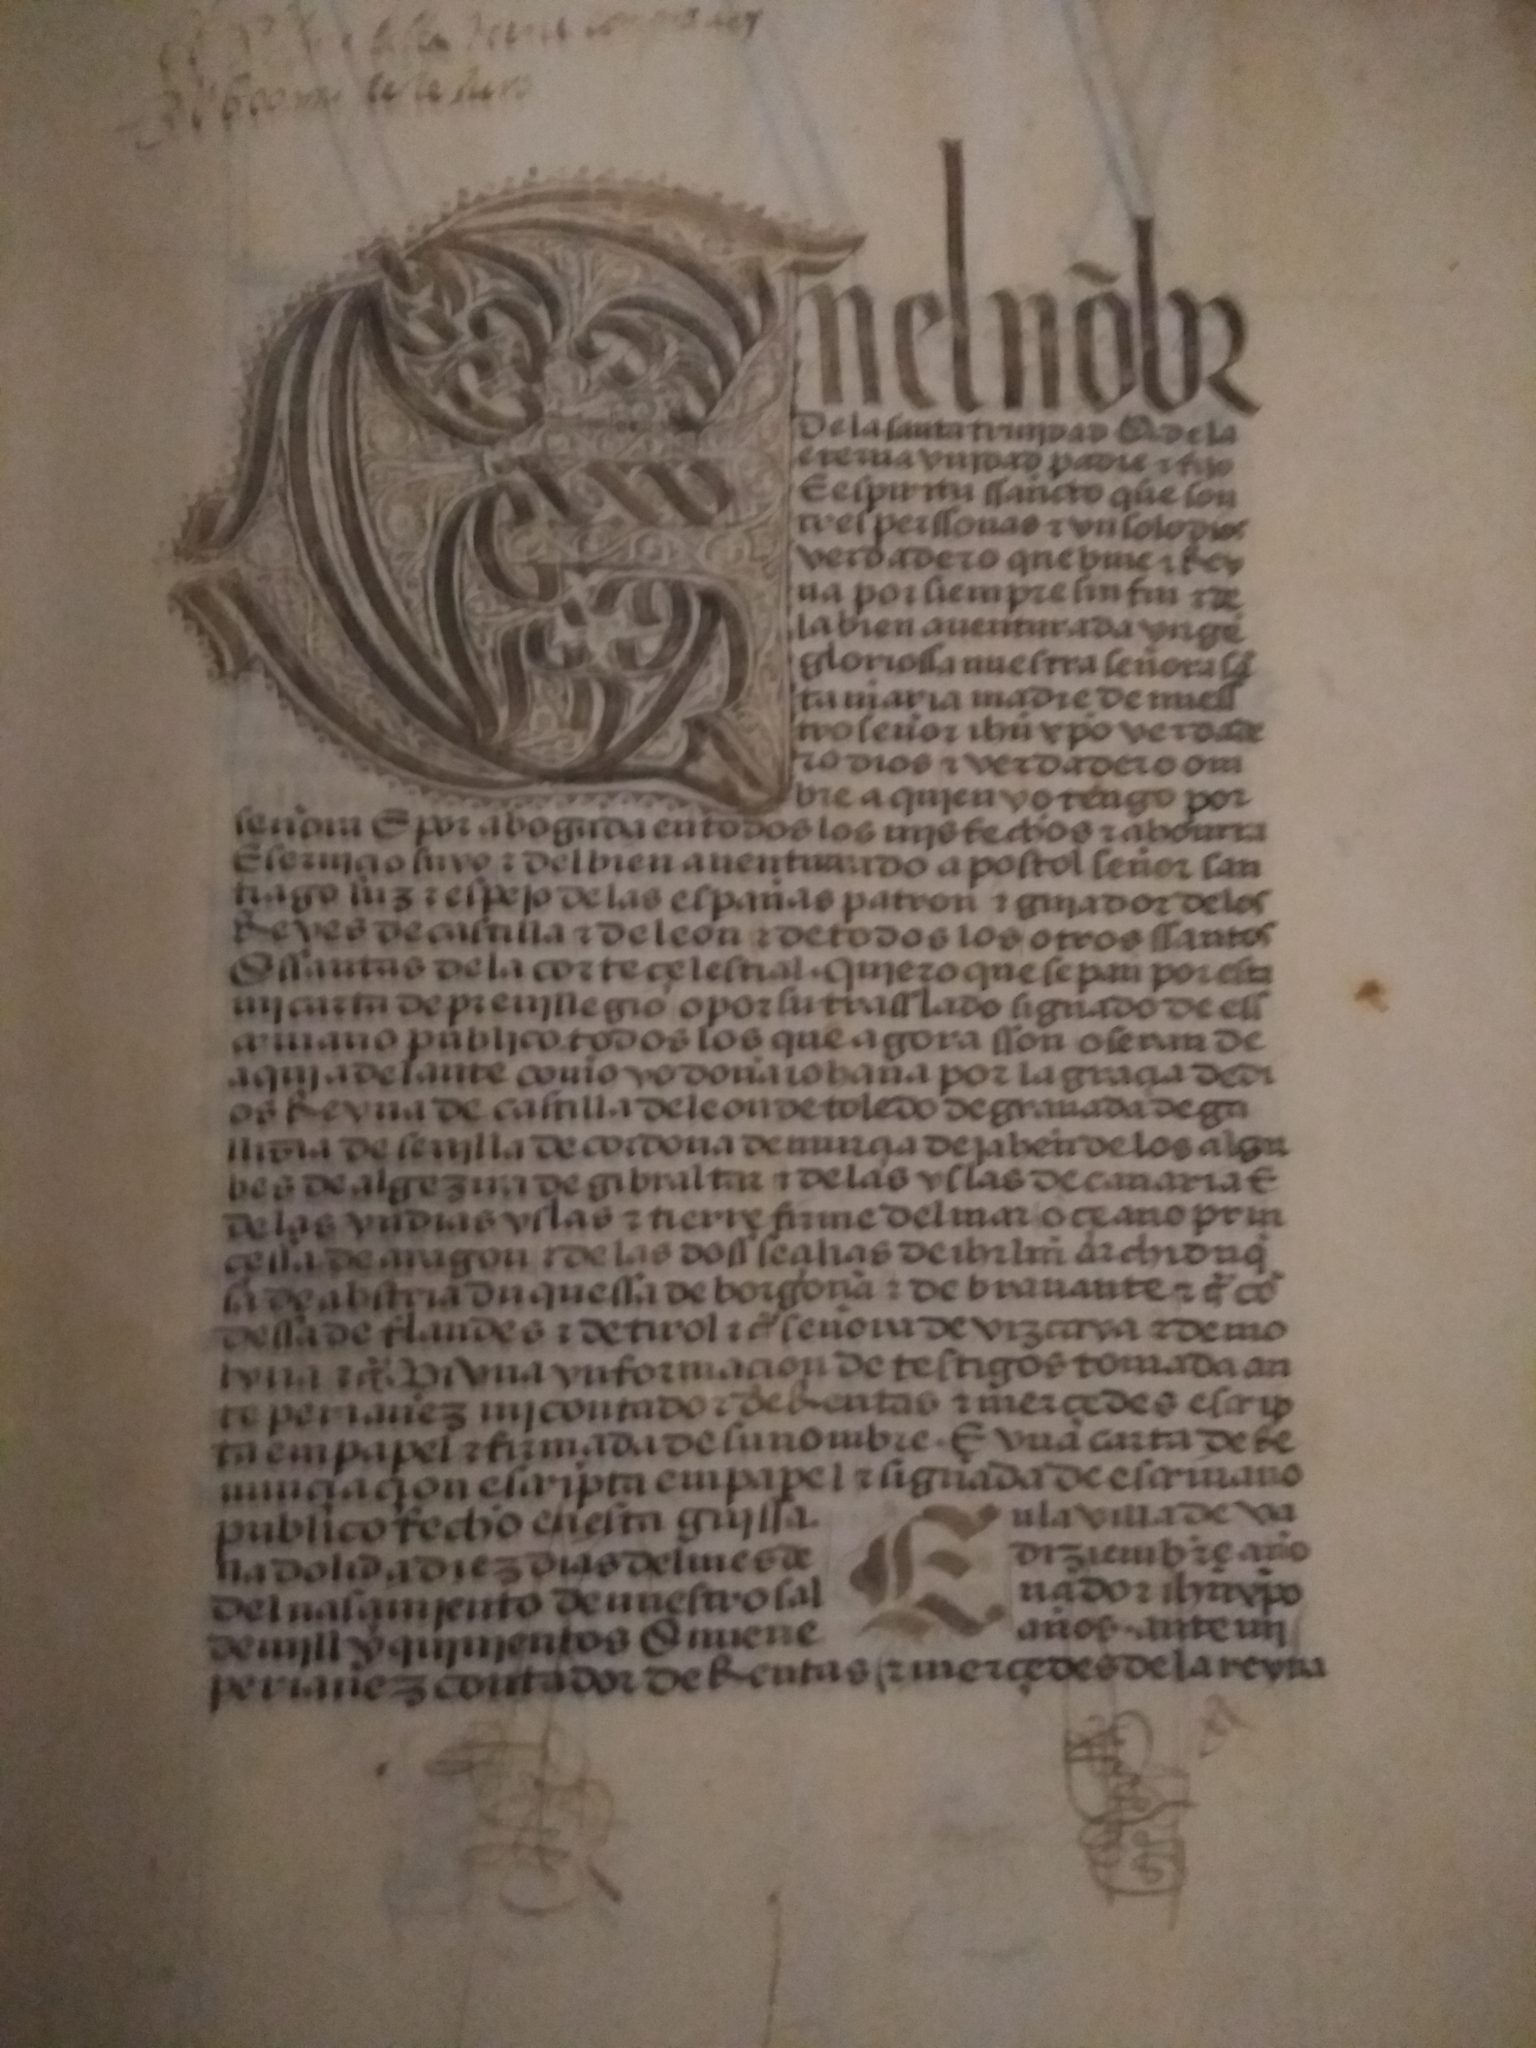 En el nõbr
de la santa trinjdad E de la
eterna vnjdad padre e fijo
E espiritu ssancto que son
tres perssonas e vn solo dios
verdadero que biue e Rey
na por siempre sin fin e de
la bien auenturada virgē
gloriossa nuestra señora sā
ta maria madre de nuess
tro señor ihũ xp̃o verdade
ro dios e verdadero om
bre a quien yo tengo por
señora E por abogada en todos los mjs fechos e a honrra
E serujçio suyo e del bien auenturado apostol señor san
tiago luz e espejo de las españas patron e guiador de los
Reyes de castilla e de leon e de todos los otros ssantos
E ssantas de la corte çelestial. Quiero que sepan por esta
mj carta de preujllegio o por su trasslado signado de ess
criuano publico todos los que agora sson o seran de
aquj adelante como yo doña iohana por la graçia de di
os Reyna de castilla de leon de toledo de granada de ga
llizia de seujlla de cordoua de murçia de jahen de los algar
bes de algezira de gibraltar e de las yslas de canaria E
de las yndias yslas e tierra firme del mar oçeano prin
çessa de aragon e de las doss seçilias de ihrlm̃ archiduq̃
sa de abstria duquessa de borgoña e de brauante e cõ
dessa de flandes e de tirol e señora de vizcaya e de mo
lina Vi vna ynformaçion de testigos tomada an
te periañez mj contador de Rentas e merçedes escrip
ta em papel e firmada de su nombre. E vna carta de Re
nunçiaçion escripta em papel e signada de escriuano
publico fecho en esta guissa. En la villa de va
lladolid a diez dias del mes de diziembre año
del nasçimjento de nuestro saluador ihũ xp̃o
de mjll y qujnjentos E nueue años. ante mj
periañez contador de Rentas e merçedes de la reyna